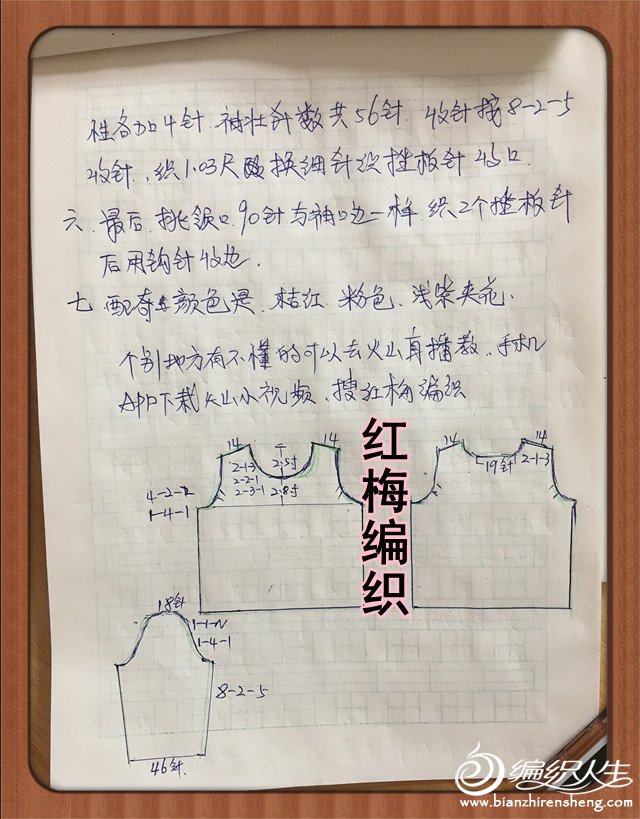 性各加4针.袖壮针数共56针.收针按8-2-5
收针,织1.03尺改换细针织搓板针收口.
六.最后.挑领口.90针与袖口边一样.织2个搓板针
后用钩针收边.
七.配奇色颜色是.桔红.粉色.浅紫夹花.
个别地方有不懂的可以去火山直播教.手机
APP下载火山小视频.搜红梅编织
14 14 14 14
2-1-3 2.5寸 19针 2-1-3
2-2-1
2-3-1 2.8寸
4-2-2
1-4-1
红梅编织
18针
1-1-n
1-4-1
8-2-5
46针.
编织人生
www.bianzhirensheng.com